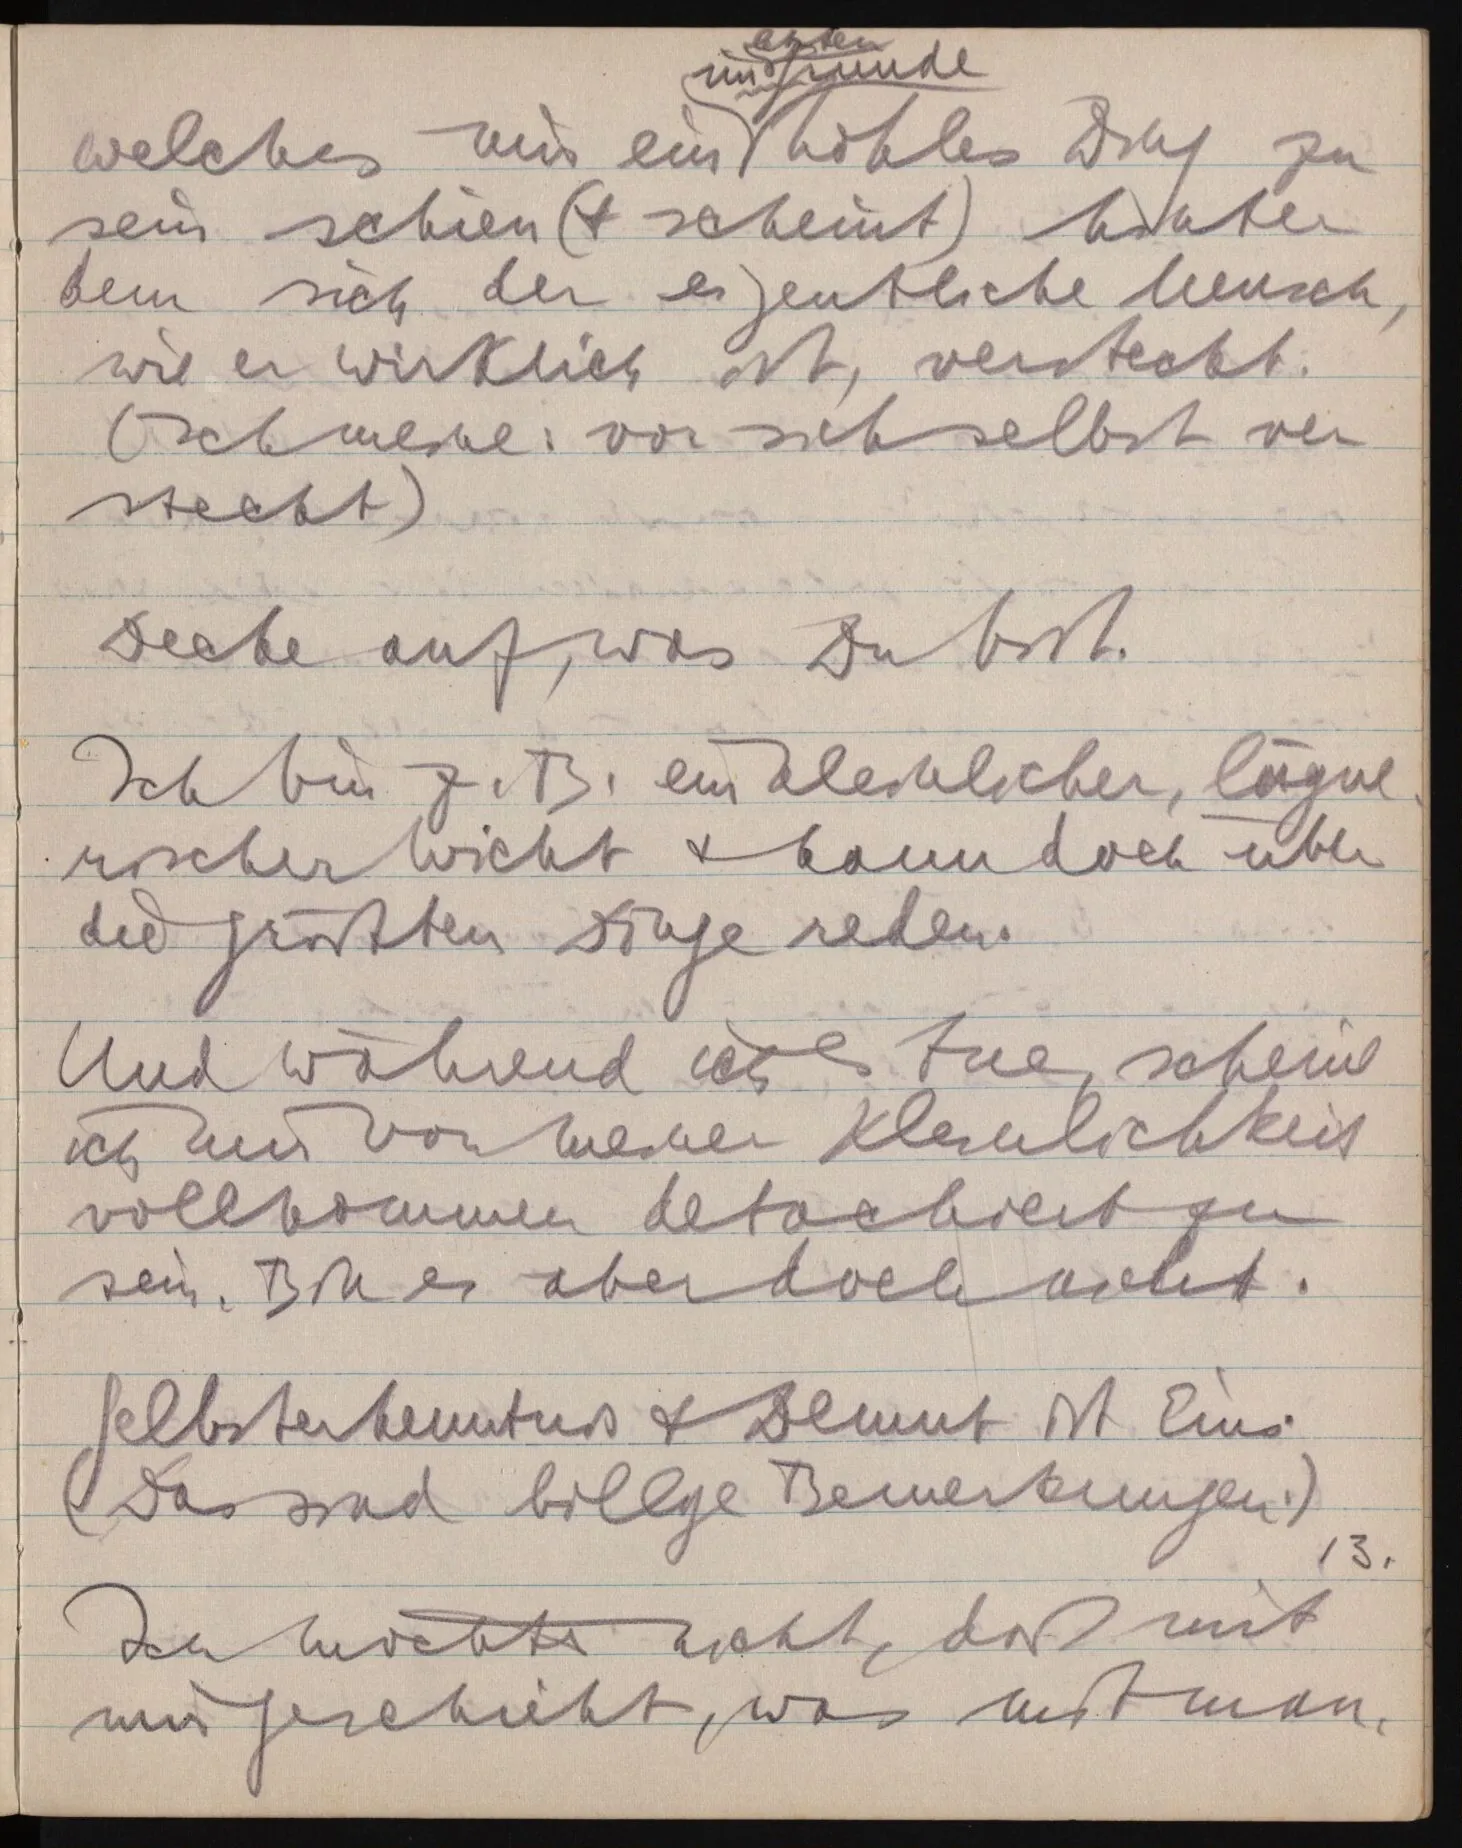 im Grunde
welches mir ein hohles Ding zu
sein schien (& scheint) hinter
dem sich der eigentliche Mensch,
wie er wirklich ist, versteckt.
(Ich meine: vor sich selbst ver
steckt)
Decke auf, was Du bist.
Ich bin z.B. ein kleinlicher, lügne-
rischer Wicht & kann doch über
die größten Dinge reden.
Und während ich es tue, scheine
ich mir von meiner Kleinlichkeit
vollkommen detachiert zu
sein. Bin es aber doch nicht.
Selbsterkenntnis & Demut ist Eins.
(Das sind billige Bemerkungen.)
13.
Ich möchte nicht, daß mit
mir geschieht, was mit man-